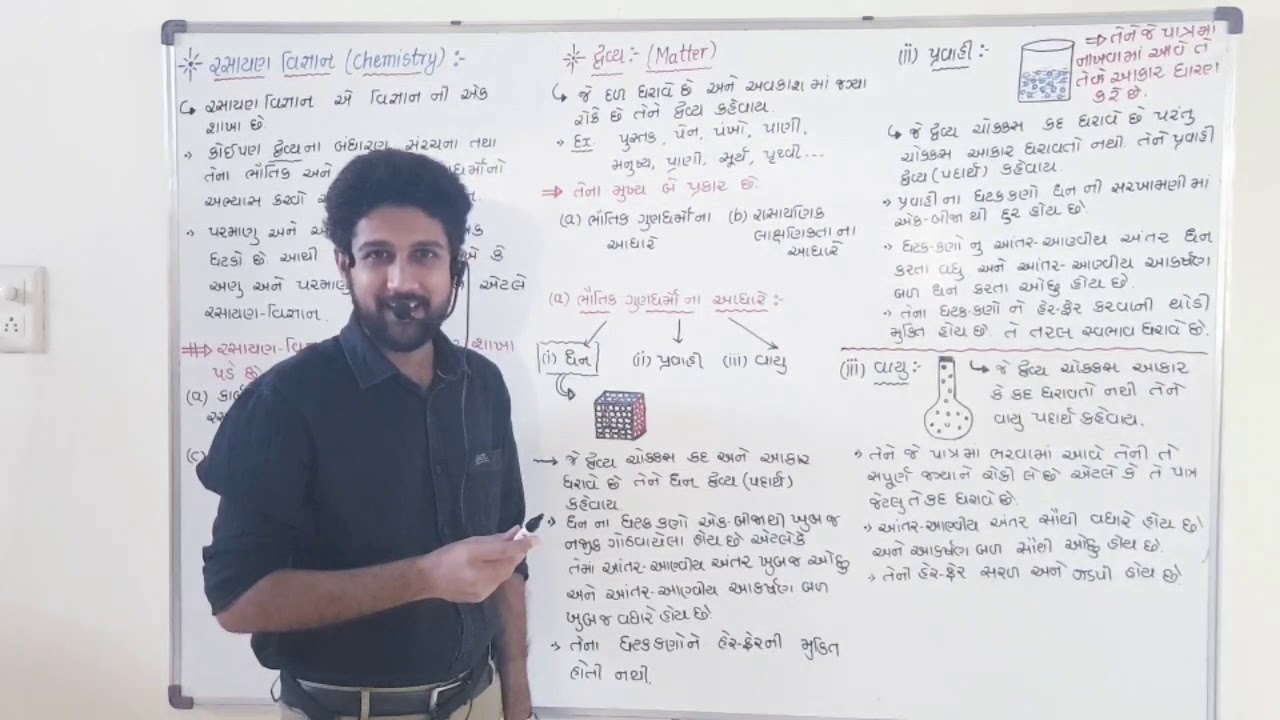 રસાયણ વિજ્ઞાન (Chemistry) :-
રસાયણ વિજ્ઞાન એ વિજ્ઞાન ની એક
શાખા છે.
કોઈપણ દ્રવ્યના બંધારણ, સંરચના તથા
તેના ભૌતિક અને
ધર્મોનો
અભ્યાસ કરવો
પરમાણુ અને
ઘટકો છે. આથી
એ કે
અણુ અને પરમાણુ
એટલે
રસાયણ-વિજ્ઞાન.
રસાયણ-વિજ્ઞા
શાખા
પડે છે
(a) કાર્બ
રસ
(c)
દ્રવ્ય:- (Matter)
જે દળ ધરાવે છે અને અવકાશ માં જગ્યા
રોકે છે તેને દ્રવ્ય કહેવાય.
Ex: પુસ્તક, પેન, પંખો, પાણી,
મનુષ્ય, પ્રાણી, સૂર્ય, પૃથ્વી...
⇒ તેના મુખ્ય બે પ્રકાર છે.
(a) ભૌતિક ગુણધર્મોના (b) રાસાયણિક
આધારે લાક્ષણિકતા ના
આધારે
(a) ભૌતિક ગુણધર્મો ના આધારે:-
(i) ઘન (ii) પ્રવાહી (iii) વાયુ
→ જે દ્રવ્ય ચોક્કસ કદ અને આકાર
ધરાવે છે તેને ઘન દ્રવ્ય (પદાર્થ)
કહેવાય.
ઘન ના ઘટક કણો એક-બીજાથી ખુબ જ
નજીક ગોઠવાયેલા હોય છે એટલેકે
તેમાં આંતર-આણ્વીય અંતર ખુબ જ ઓછુ
અને આંતર-આણ્વીય આકર્ષણ બળ
ખુબ જ વધારે હોય છે.
તેના ઘટકકણોને હેર-ફેરની મુક્તિ
હોતી નથી.
(ii) પ્રવાહી :-
⇒ તેને જે પાત્રમાં
નાખવામાં આવે તે
તેનો આકાર ધારણ
કરે છે.
જે દ્રવ્ય ચોક્કસ કદ ધરાવે છે પરંતુ
ચોક્કસ આકાર ધરાવતો નથી. તેને પ્રવાહી
દ્રવ્ય (પદાર્થ) કહેવાય.
પ્રવાહી ના ઘટક કણો ઘન ની સરખામણી માં
એક-બીજા થી દુર હોય છે.
ઘટક-કણો નુ આંતર-આણ્વીય અંતર ઘન
કરતા વધુ અને આંતર-આણ્વીય આકર્ષણ
બળ ઘન કરતા ઓછુ હોય છે.
તેના ઘટક-કણો ને હેર-ફેર કરવાની થોડી
મુક્તિ હોય છે તે તરલ સ્વભાવ ધરાવે છે.
(iii) વાયુ :-
જે દ્રવ્ય ચોક્કસ આકાર
કે કદ ધરાવતો નથી તેને
વાયુ પદાર્થ કહેવાય.
તેને જે પાત્રમાં ભરવામાં આવે તેની તે
સંપૂર્ણ જગ્યાને રોકી લે છે એટલે કે તે પાત્ર
જેટલુ તે કદ ધરાવે છે.
આંતર-આણ્વીય અંતર સૌથી વધારે હોય છે
અને આકર્ષણ બળ સૌથી ઓછુ હોય છે.
તેની હેર-ફેર સરળ અને ઝડપી હોય છે.